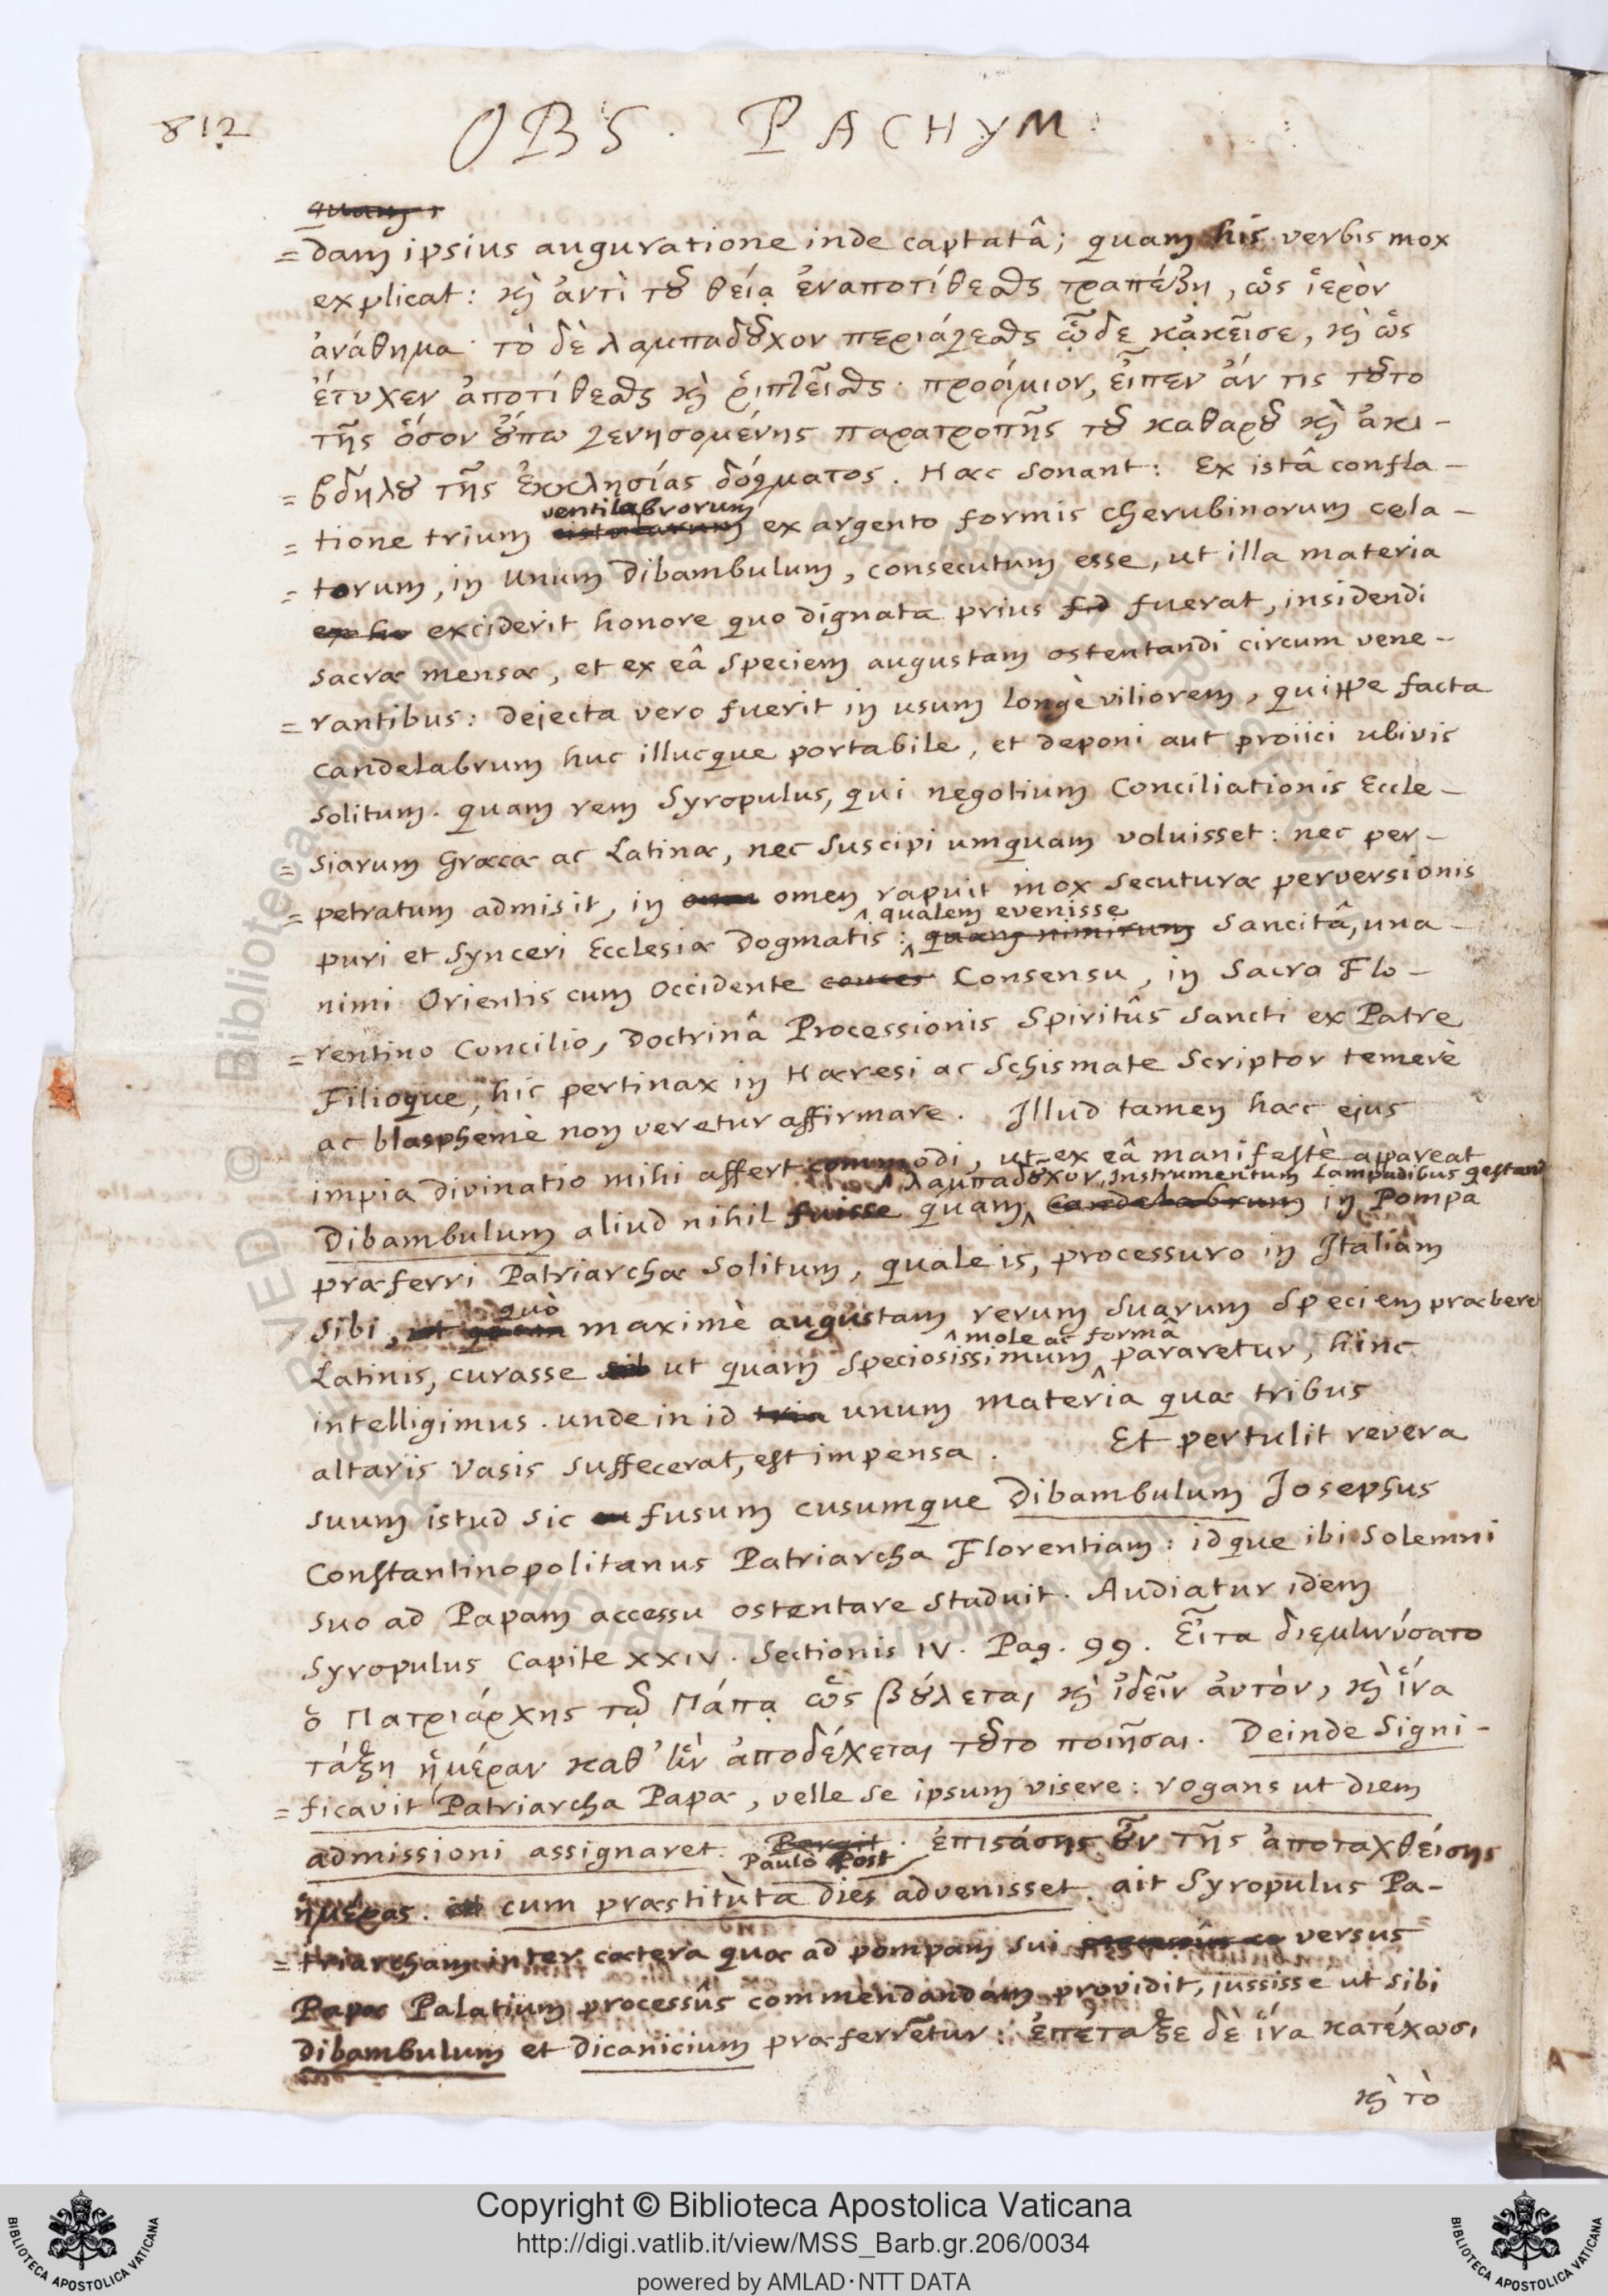 812
OBS. PACHYM.
=dam ipsius auguratione inde captatâ; quam his verbis mox
explicat: κὶ ἀντὶ τοῦ θείᾳ ἐναποτίθεσθαι τραπέζῃ, ὡς ἱερὸν
ἀνάθημα· τὸ δὲ λαμπαδοῦχον περιάγεσθαι ὧδε κᾀκεῖσε, κὶ ὡς
ἔτυχεν ἀποτίθεσθαι κὶ ῥιπτεῖσθαι· προοίμιον, εἶπεν ἄν τις τοῦτο
τῆς ὅσον οὔπω γενησομένης παρατροπῆς τοῦ καθαροῦ κὶ ἀκι-
=βδήλου τῆς ἐκκλησίας δόγματος. Hæc sonant: Ex istâ confla-
ventilabrorum
=tione trium ex argento formis cherubinorum cela-
=torum, in unum Dibambulum, consecutum esse, ut illa materia
exciderit honore quo dignata prius fuerat, insidendi
sacræ mensæ, et ex eâ speciem augustam ostentandi circum vene-
=rantibus: dejecta vero fuerit in usum longè viliorem, quippe facta
candelabrum huc illucque portabile, et deponi aut proiici ubivis
solitum. quam rem Syropulus, qui negotium Conciliationis Eccle-
=siarum Græcæ ac Latinæ, nec suscipi umquam voluisset: nec per-
=petratum admisit, in omen rapuit mox secuturæ perversionis
qualem evenisse
puri et synceri Ecclesiæ Dogmatis: quam nimirum sancitâ, una-
nimi Orientis cum Occidente Consensu, in Sacro Flo-
=rentino Concilio, Doctrinâ Processionis Spiritûs Sancti ex Patre
Filioque, hic pertinax in Hæresi ac Schismate Scriptor temerè
ac blasphemè non veretur affirmare. Illud tamen hæc ejus
impia divinatio mihi affert commodi, ut ex eâ manifestè appareat
λαμπαδοῦχον, Instrumentum Lampadibus gestand
Dibambulum aliud nihil fuisse quam candelabrum in Pompa
præferri Patriarchæ solitum, quale is, processuro in Italiam
quò
sibi, maximè augustam rerum suarum speciem præbere
mole ac formâ
Latinis, curasse ut quam speciosissimum pararetur, hinc
intelligimus. unde in id tria unum materia quæ tribus
altaris vasis suffecerat, est impensa. Et pertulit revera
suum istud sic fusum cusumque Dibambulum Josephus
Constantinopolitanus Patriarcha Florentiam: idque ibi solemni
suo ad Papam accessu ostentare studuit. Audiatur idem
Syropulus Capite XXIV. Sectionis IV. Pag. 99. Εἶτα διεμηνύσατο
ὁ Πατριάρχης τῷ Πάπᾳ ὡς βούλεται κὶ ἰδεῖν αὐτὸν, κὶ ἵνα
τάξῃ ἡμέραν καθ' ἣν ἀποδέχεται τοῦτο ποιῆσαι. Deinde Signi-
=ficavit Patriarcha Papæ, velle se ipsum visere: rogans ut diem
admissioni assignaret. Pergit. ἐπιστάσης οὖν τῆς ἀποταχθείσης
Paulò Post
ἡμέρας. cum præstituta dies advenisset. ait Syropulus Pa-
=triarcham inter cætera quæ ad pompam sui versus
Papæ Palatium processûs commendandam providit, jussisse ut sibi
dibambulum et dicanicium præferretur: ἐπέταξε δὲ ἵνα κατέχωσι
κὶ τὸ
Copyright © Biblioteca Apostolica Vaticana
http://digi.vatlib.it/view/MSS_Barb.gr.206/0034
powered by AMLAD·NTT DATA
BIBLIOTECA APOSTOLICA VATICANA
BIBLIOTECA APOSTOLICA VATICANA